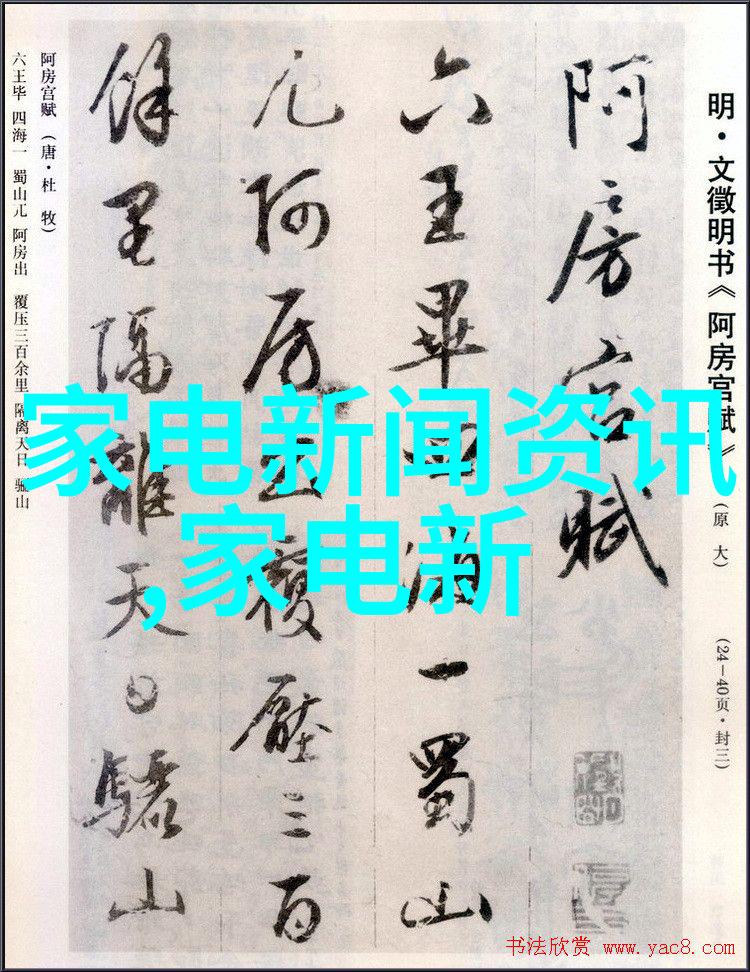 明·文徵明书《阿房宫赋》(原大) (24—40页·封三)
阿房宫賦
六王畢四海一蜀山
兀阿房出覆壓三百
餘里隔離天日驪山
阿房宫赋(唐·杜 牧)
六王毕 四海一 蜀山兀 阿房出 覆压三百余里 隔离天日 骊山
家电新闻资讯
,家电新
书法欣赏 www.yac8.com